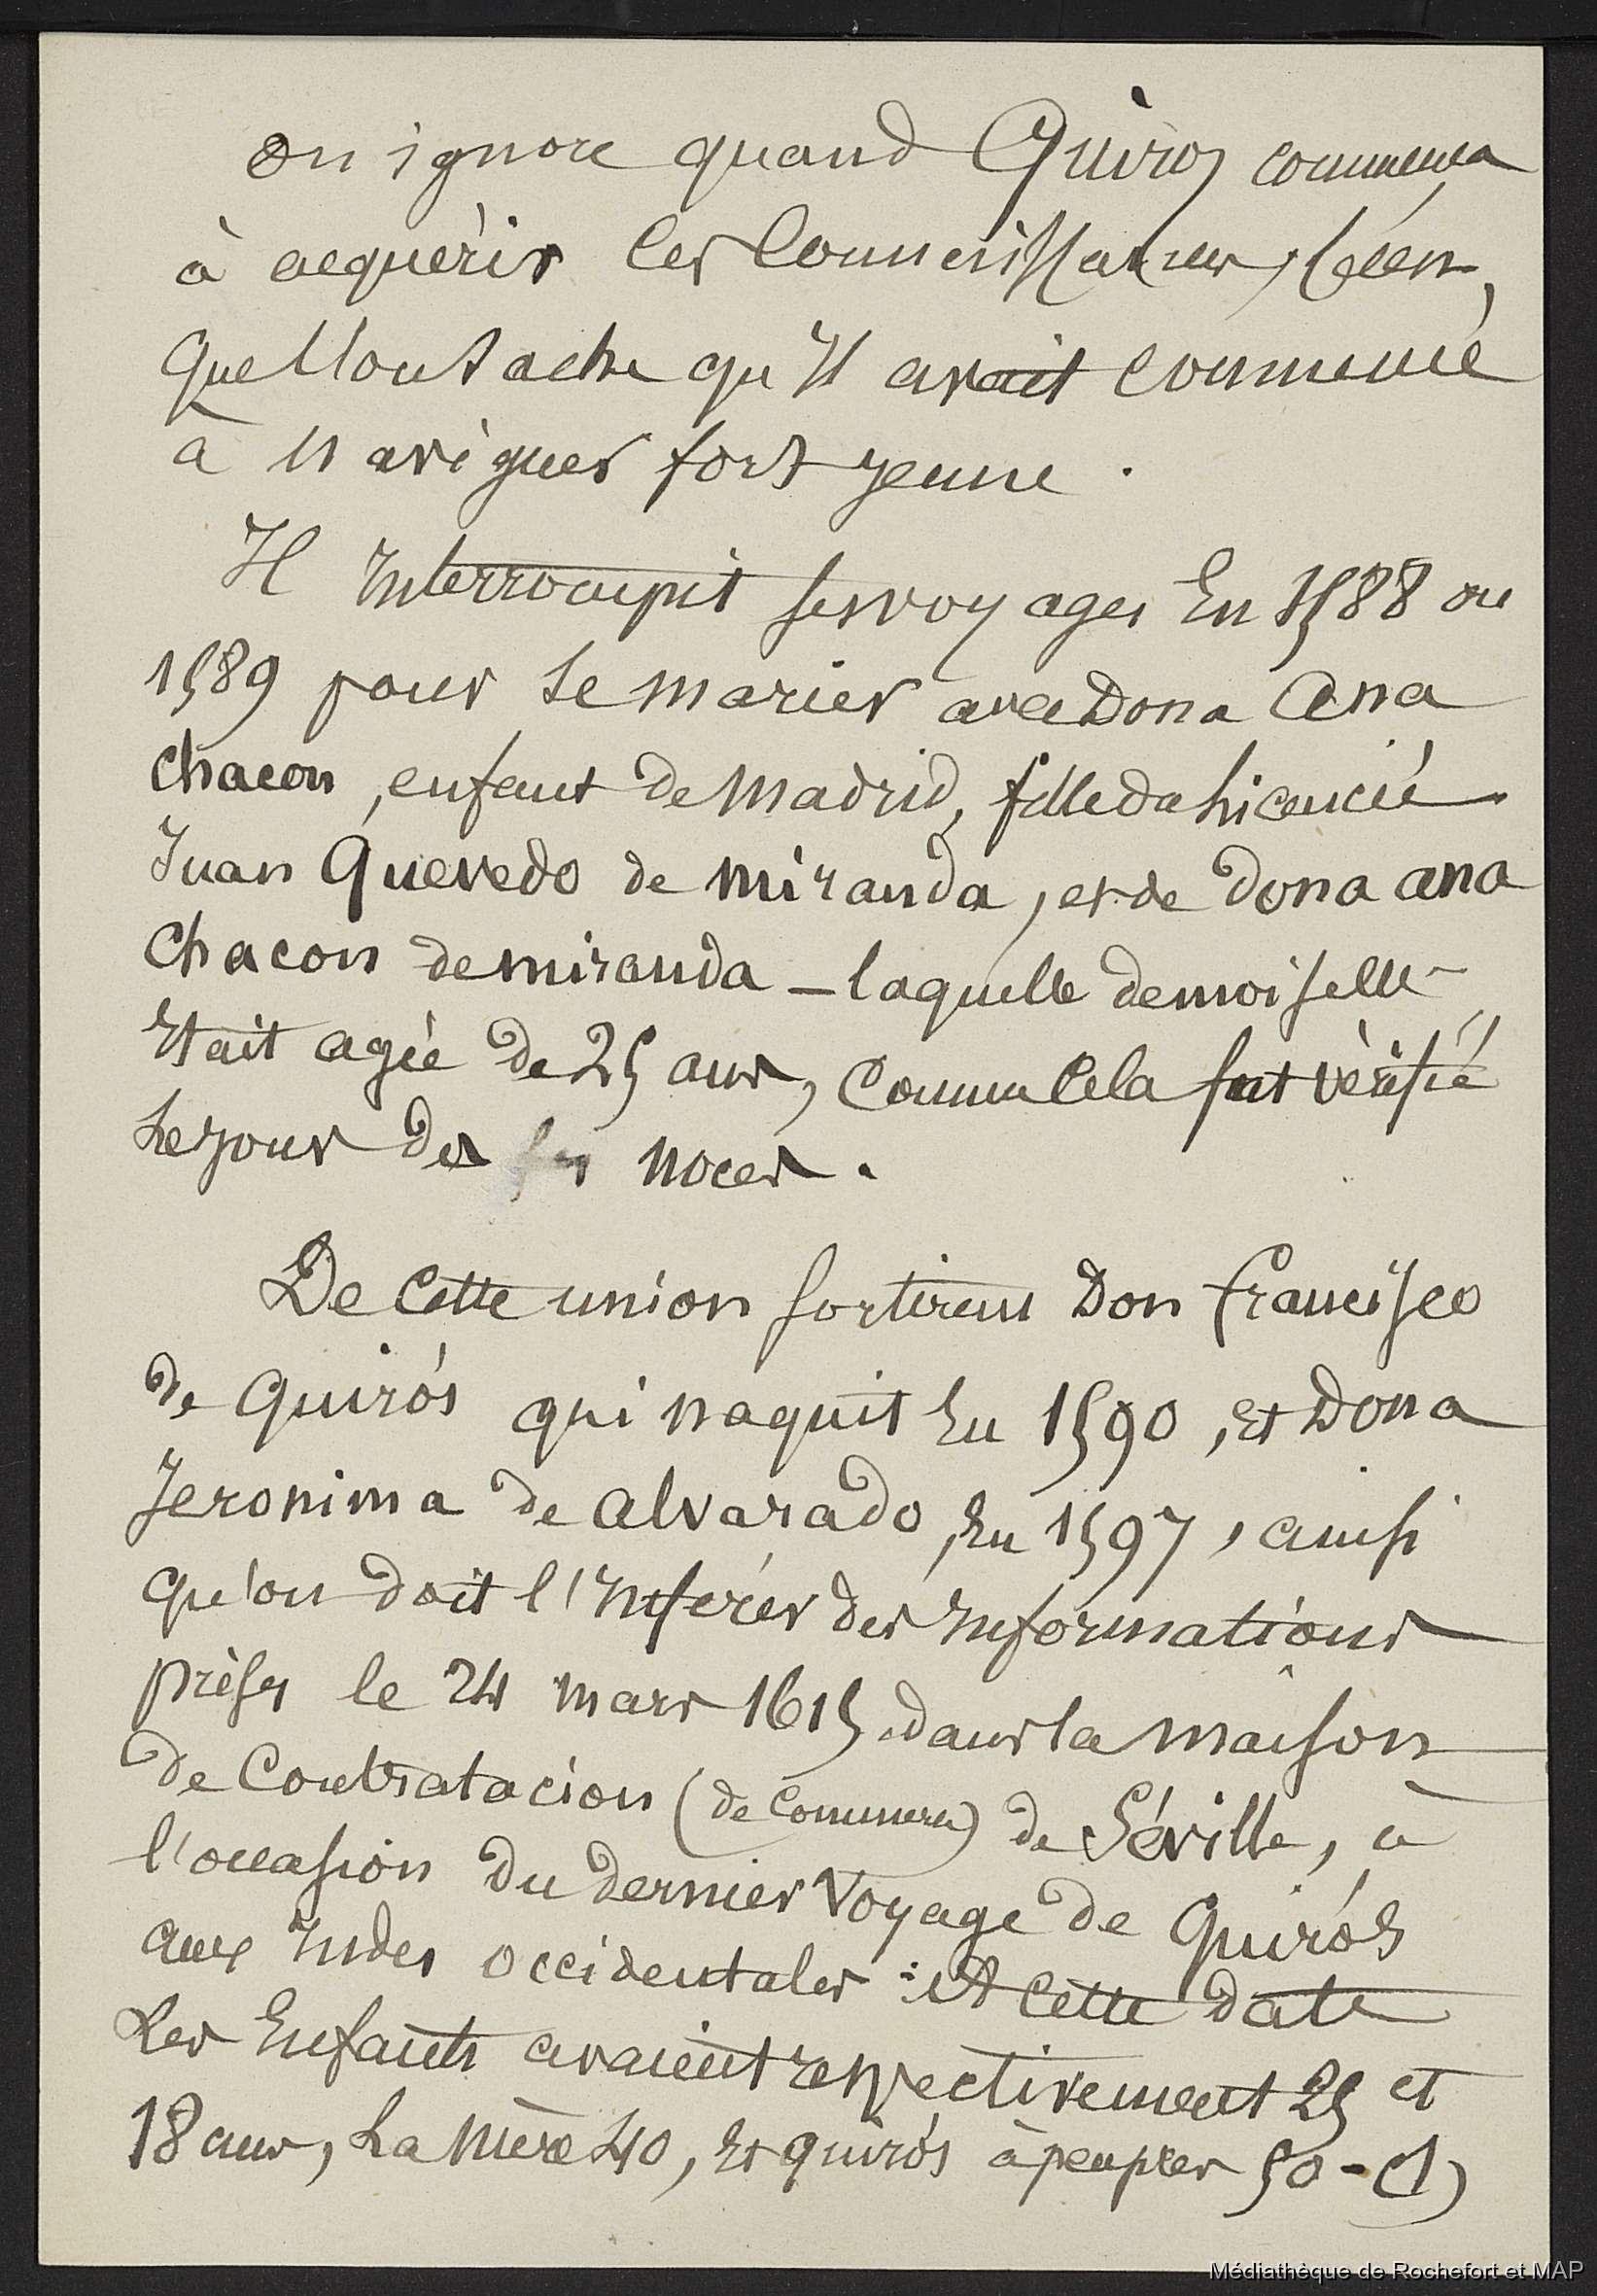 On ignore quand Quiros commença
à acquérir ces connaissances, bien
que l'on sache qu'il avait commencé
à naviguer fort jeune.
Il interrompit ses voyages en 1588 ou
1589 pour se marier avec Dona Ana
Chacon, enfant de Madrid, fille du licencié
Juan Quevedo de Miranda, et de Dona Ana
Chacon de Miranda – laquelle demoiselle
était agée de 25 ans, comme cela fut vérifié
le jour des noces.
De cette union sortirent Don Francisco
de Quirós qui naquit en 1590, et Dona
Jeronima de Alvarado, en 1597, ainsi
qu'on doit l'inférer des informations
prises le 24 mars 1615 dans la maison
de Contratacion (de Commerce) de Séville, à
l'occasion du dernier voyage de Quirós
aux Indes occidentales : à cette date
les enfants avaient respectivement 25 et
18 ans, la mère 40, et Quirós à peu près 50 - (1)
Médiathèque de Rochefort et MAP